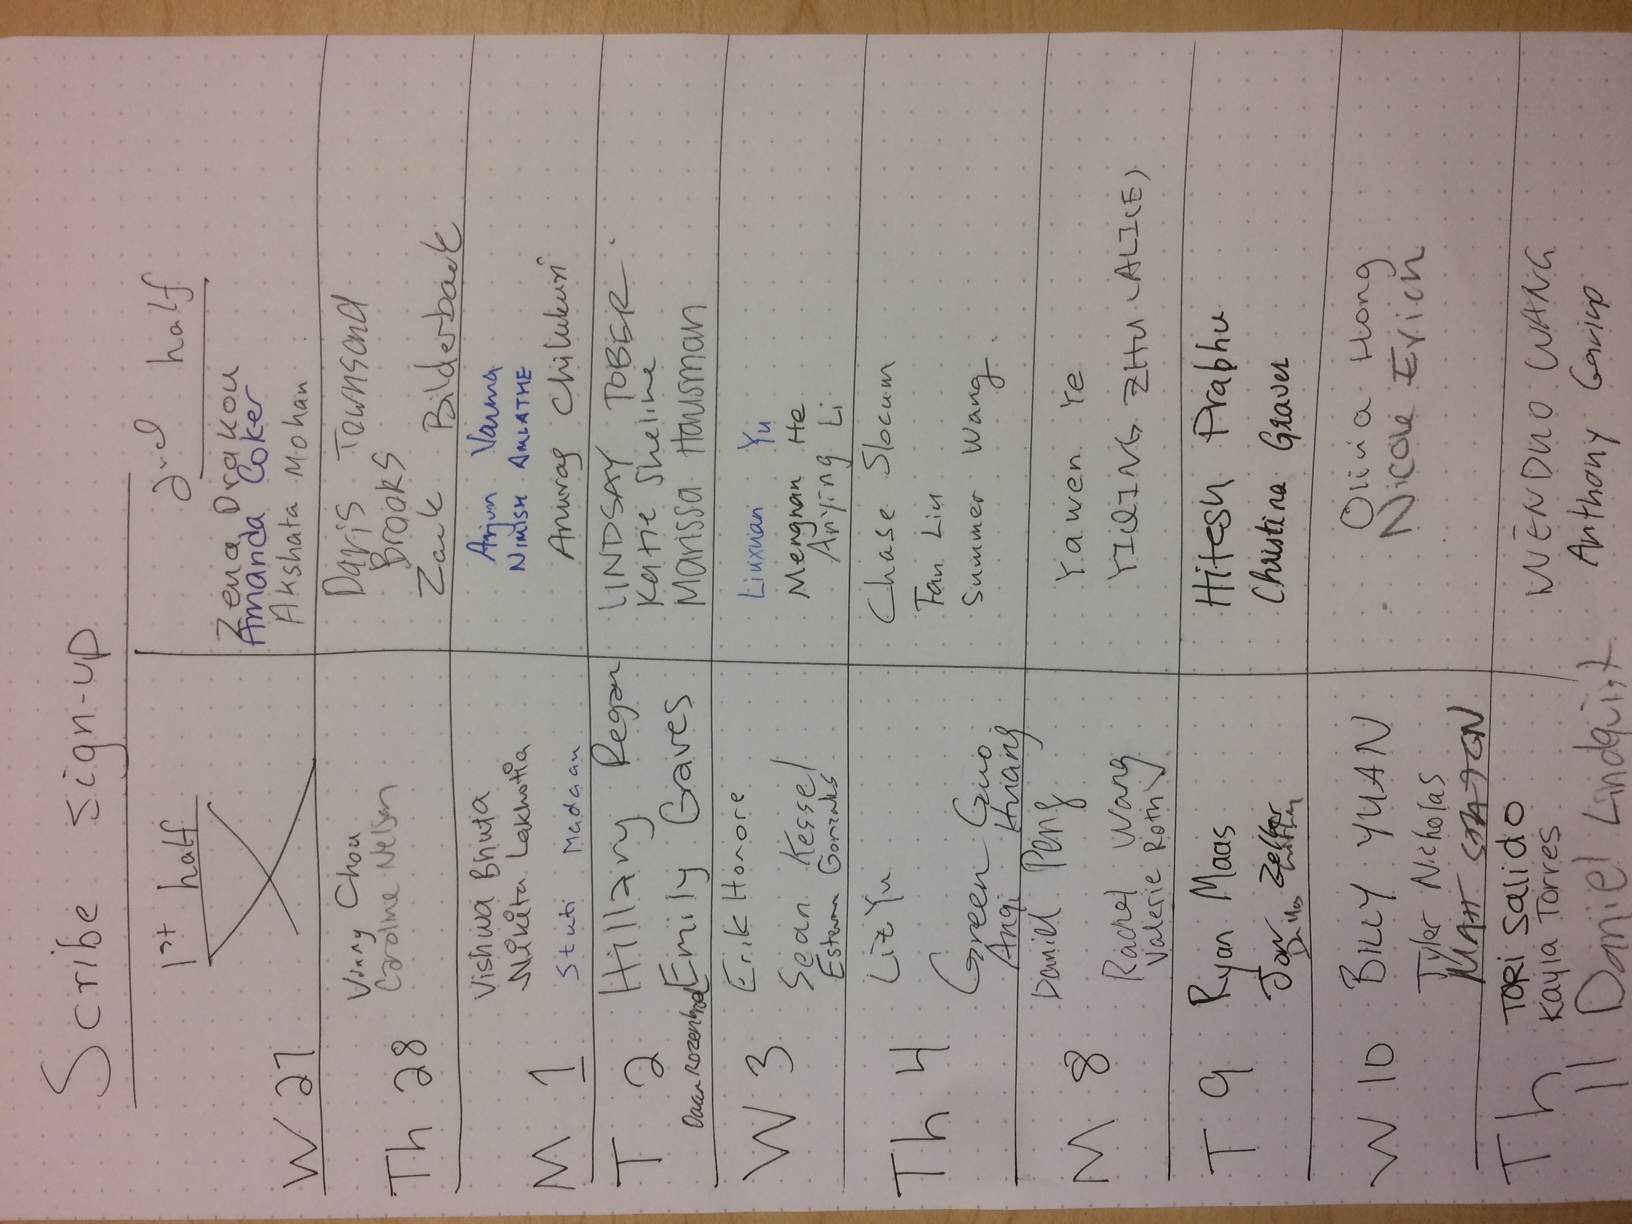 Scribe sign-up
1st half
2nd half
W 27
Zena Drakou
Amanda Coker
Akshata Mohan
Th 28
Vinny Chou
Caroline Nelson
Davis Townsend
Brooks
Zack Bilderback
M 1
Vishwa Bhuta
Nikita Lakhotia
Stuti Madaan
Arjun Varma
NIMISH AMLATHE
Anurag Chilukuri
T 2
Hillary Regan
Emily Graves
Daan Rozenbroek
LINDSAY TOBER
Katie Sheline
Marissa Hausman
W 3
Erik Honore
Sean Kessel
Esteban Gonzales
Liuxuan Yu
Mengnan He
Anying Li
Th 4
Liz Yu
Green Guo
Anqi Huang
Chase Slocum
Fan Liu
Summer Wang
M 8
Daniel Peng
Rachel Wang
Valerie Roth
Yawen Ye
YIQING ZHU (ALICE)
T 9
Ryan Maas
Jon Zeller
Dallas
Hitesh Prabhu
Christina Graves
W 10
BILLY YUAN
Tyler Nicholas
MATT STATON
Olivia Hong
Nicole Erich
Th 11
TORI Salido
Kayla Torres
Daniel Lindquist
WENDUO WANG
Anthony